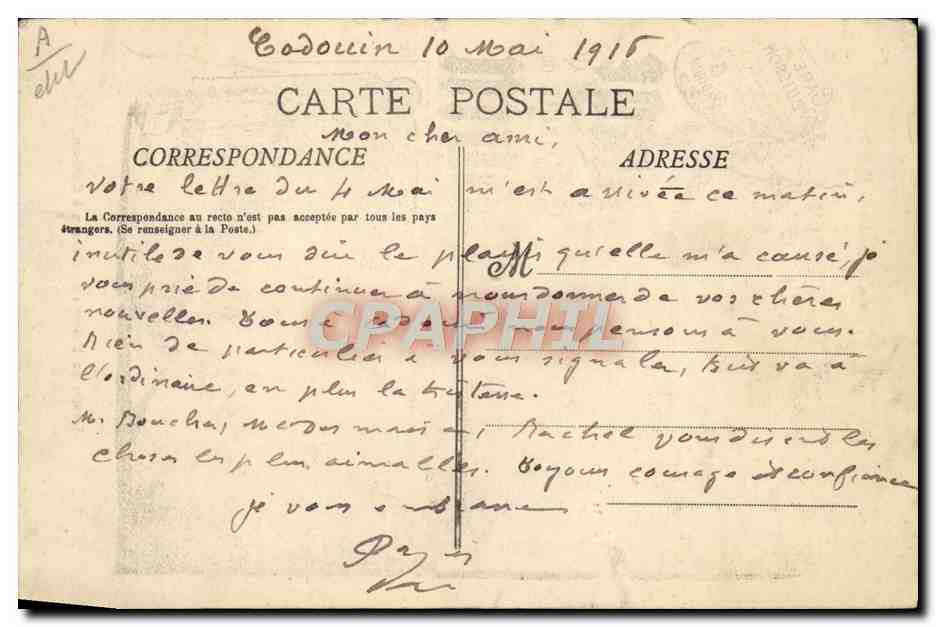 A
Cadouin 10 Mai 1916
CARTE POSTALE
Mon cher ami,
CORRESPONDANCE
ADRESSE
votre lettre du 4 Mai m'est arrivée ce matin,
La Correspondance au recto n'est pas acceptée par tous les pays
étrangers. (Se renseigner à la Poste.)
inutile de vous dire le plaisir qu'elle m'a causé, je
M
vous prie de continuer à nous donner de vos chères
nouvelles. nous pensons à vous.
CPAPHIL
Rien de particulier a vous signaler, va à
l'ordinaire, en plus la tristesse.
M. Rachel vous disent les
choses les plus aimables. Soyons courage et confiance
je vous embrasse